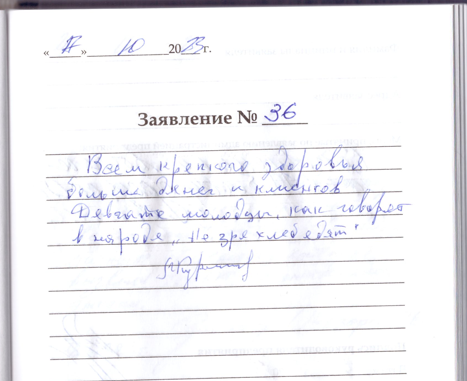 « 17 » 10 2023 г.
Заявление № 36
Всем крепкого здоровья
больше денег и клиентов
Девчата молодцы, как говорят
в народе „Не зря хлеб едят"